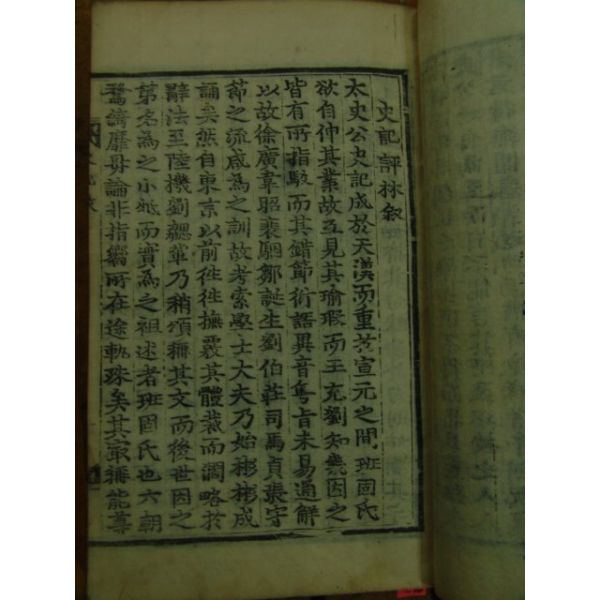 史記評林叙
太史公史記成於天漢而重於宣元之間班固氏
欲自伸其業故互見其瑜瑕而王充劉知幾因之
皆有所指駁而其錯節衍語異音奪旨未易通解
以故徐廣韋昭裵駰鄒誕生劉伯莊司馬貞張守
節之流咸為之訓故考索學士大夫乃始彬彬成
誦矣然自東京以前徃徃撫襲其體裁而調略於
辭法至陸機劉勰輩乃稍頌稱其文而後世因之
第名為之小抵而實為之祖述者班固氏也六朝
騖綺靡毋論非指嚮所在途軌殊矣其最稱能尊